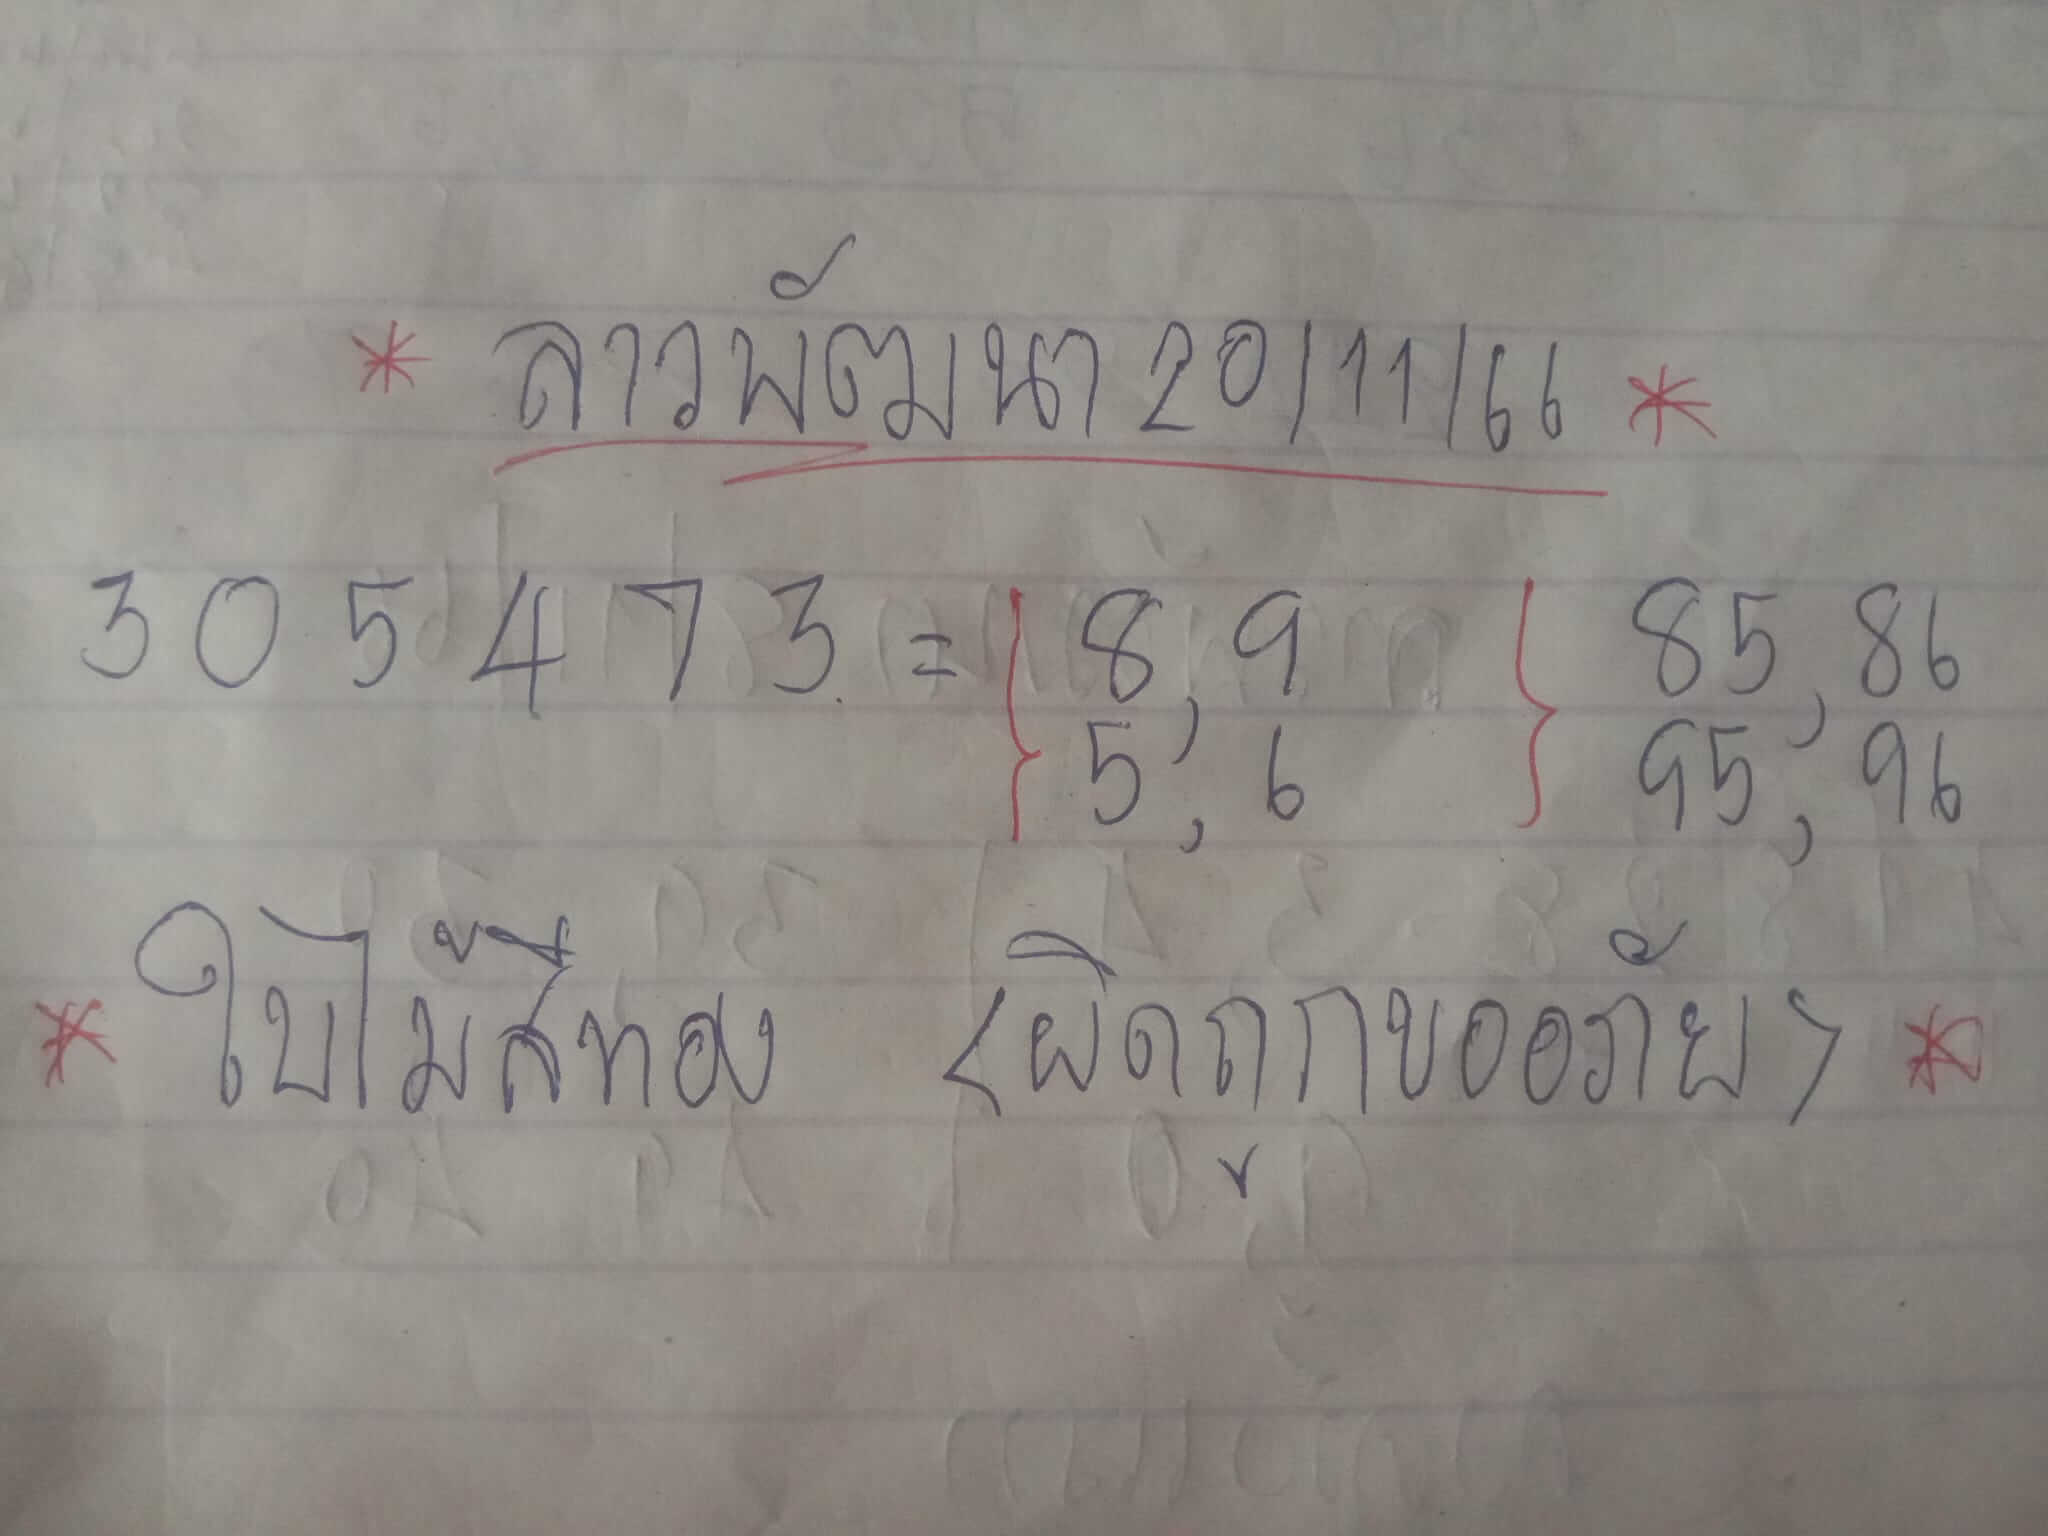 * ลาวพัฒนา 20/11/66 *
3 0 5 4 7 3 = } 8, 9 } 85, 86
5, 6 95, 96
* ใบไม้สีทอง <ผิดถูกขออภัย> *